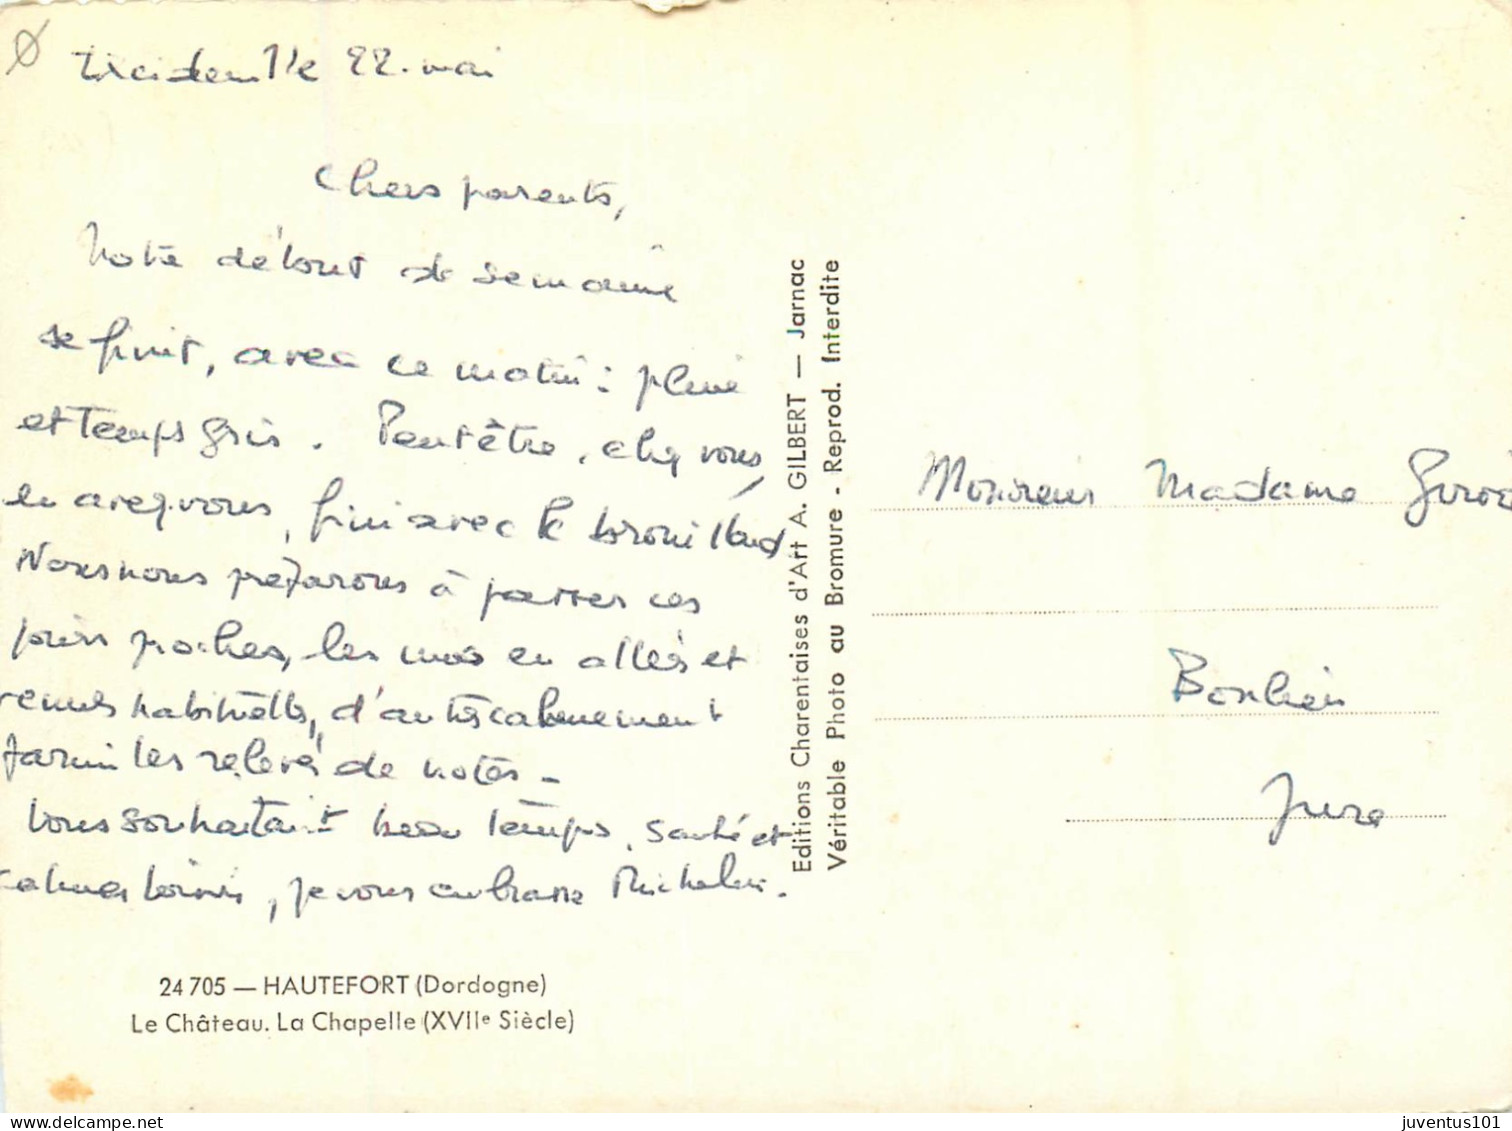 le 22 mai
Chers parents,
Notre début de semaine
se finit, avec ce matin : pluie
et temps gris. Peut être, chez vous,
en avez-vous, fini avec le brouillard
Nous nous préparons à passer ces
jours proches, les uns en allées et
venues habituelles, d'autres calmement
parmi les relevés de notes -
Vous souhaitant beau temps, santé et
calmes loisirs, je vous embrasse Micheline.
24 705 — HAUTEFORT (Dordogne)
Le Château. La Chapelle (XVIIe Siècle)
Editions Charentaises d'Art A. GILBERT — Jarnac
Véritable Photo au Bromure - Reprod. Interdite
Monsieur Madame
Bonlieu
Jura
juventus101